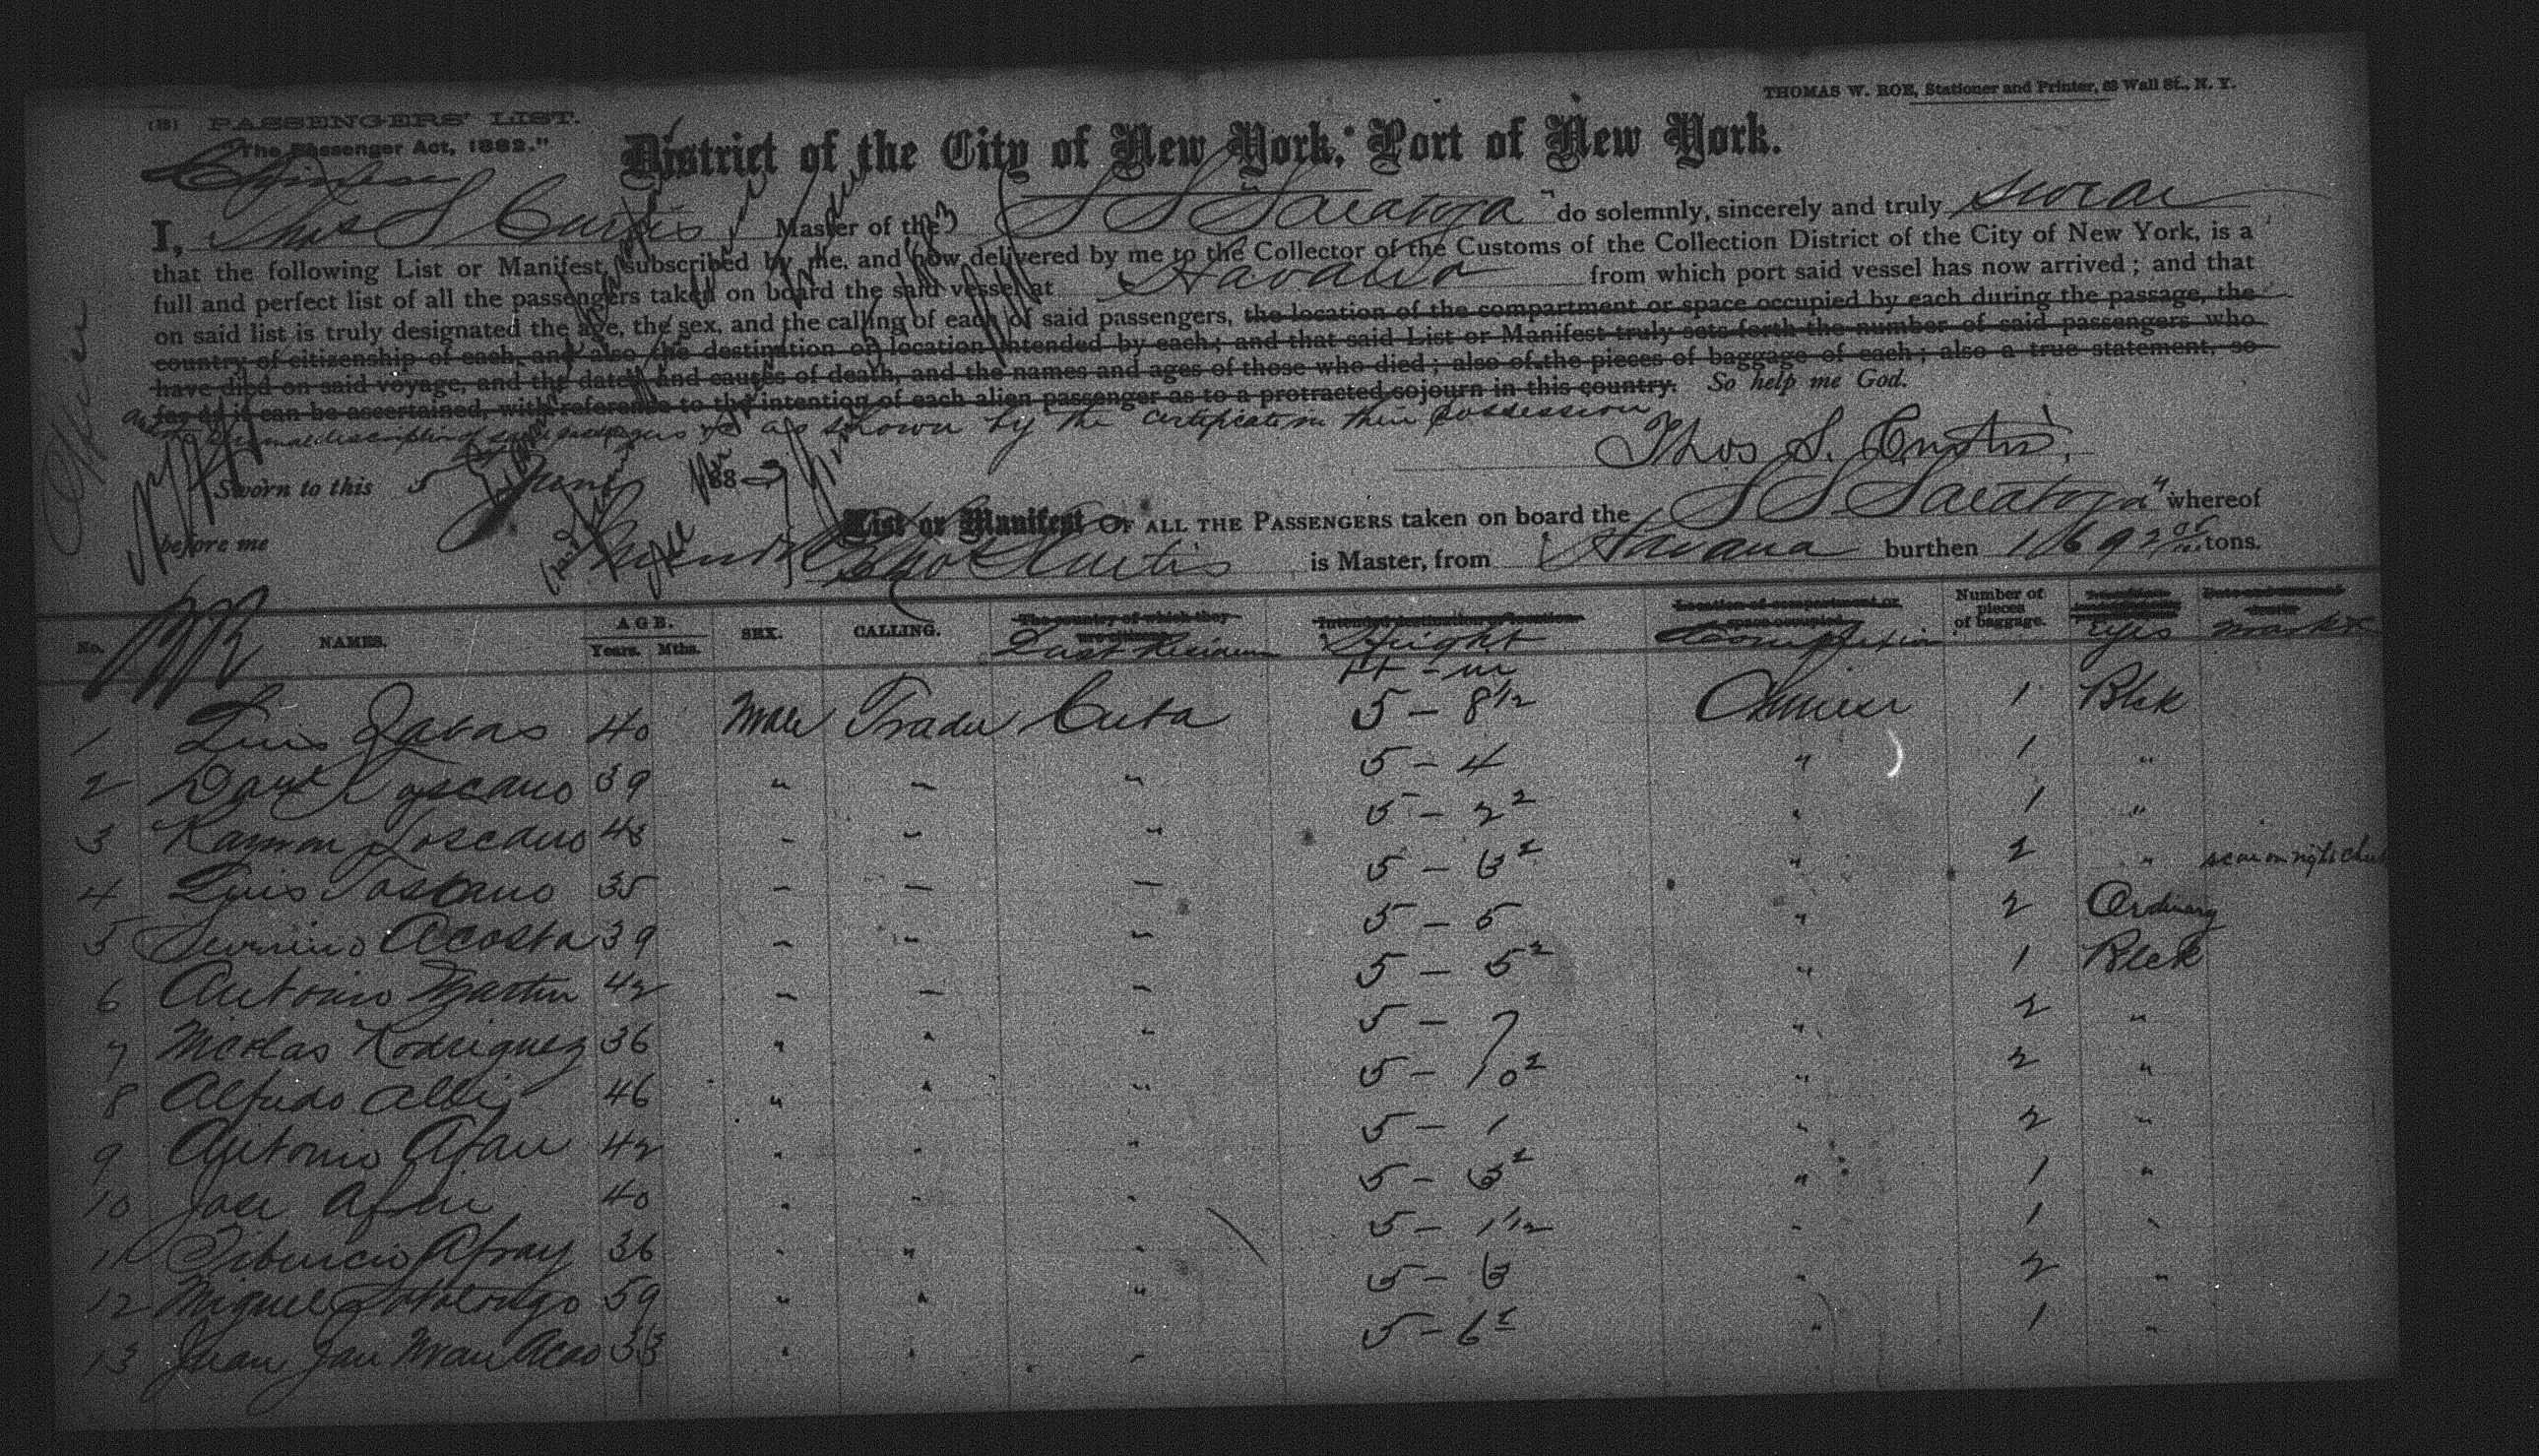 THOMAS W. ROE, Stationer and Printer, 63 Wall St., N. Y.
(B) PASSENGERS' LIST.
"The Passenger Act, 1882."
District of the City of New York, Port of New York.
Chinese
I, Thos S Curtis Master of the SS Saratoga" do solemnly, sincerely and truly swear
that the following List or Manifest, subscribed by me, and now delivered by me to the Collector of the Customs of the Collection District of the City of New York, is a
full and perfect list of all the passengers taken on board the said vessel at Havana from which port said vessel has now arrived; and that
on said list is truly designated the age, the sex, and the calling of each of said passengers, the location of the compartment or space occupied by each during the passage, the
country of citizenship of each, and also the destination or location intended by each; and that said List or Manifest truly sets forth the number of said passengers who
have died on said voyage, and the dates and causes of death, and the names and ages of those who died; also of the pieces of baggage of each; also a true statement, so
far as it can be ascertained, with reference to the intention of each alien passenger as to a protracted sojourn in this country. So help me God.
as shown by the certificate in their possession
Thos S. Curtis,
Sworn to this 5 June 1883
before me
List or Manifest OF ALL THE PASSENGERS taken on board the SS Saratoga" whereof
Thos S Curtis is Master, from Havana burthen 1692 tons.
No. NAMES. AGE. Years. Mths. SEX. CALLING. The country of which they are citizens. Last Residence Intended destination or location. Height Location of compartment or space occupied. Complexion Number of pieces of baggage. Eyes Date and cause of death. Marks
ft - in
1 Luis Zavas 40 Male Trader Cuba 5 - 8 1/2 Chinese 1 Blck
2 Toscano 39 " " " 5 - 4 " 1 "
3 Ramon Toscano 43 " " " 5 - 2 2 " 1 "
4 Luis Toscano 35 " " " 5 - 3 2 " 2 " scar on right cheek
5 Severino Acosta 39 " " " 5 - 5 " 2 Ordinary
6 Antonio Martin 42 " " " 5 - 5 2 " 1 Blck
7 Nicolas Rodriguez 36 " " " 5 - 7 " 2 "
8 Alfredo 46 " " " 5 - 10 2 " 2 "
9 Antonio 42 " " " 5 - 1 " 2 "
10 Jose 40 " " " 5 - 3 2 " 1 "
11 Tiburcio 36 " " " 5 - 1 1/2 " 1 "
12 Miguel Sotolongo 59 " " " 5 - 3 " 2 "
13 Juan 33 " " " 5 - 6 " 1 "